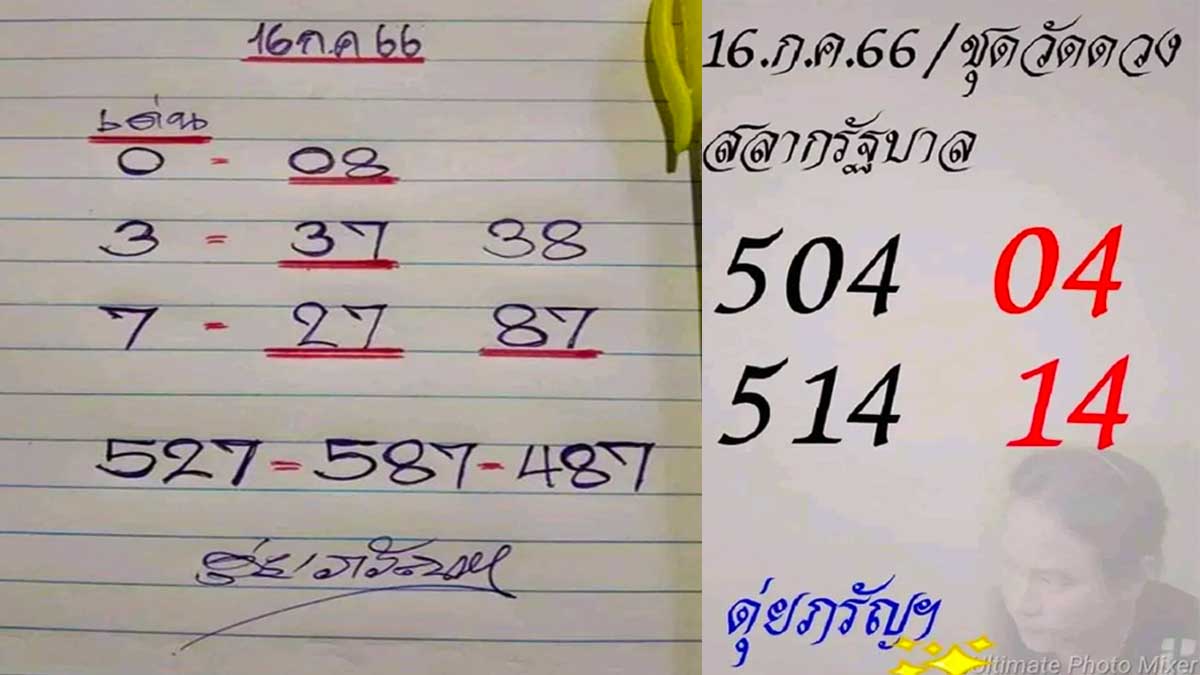 16 ก.ค 66
เด่น
0 - 08
3 = 37 38
7 - 27 87
527 = 587 - 487
ตุ่ย ภรัณฯ
16.ก.ค.66 / ชุดวัดดวง
สลากรัฐบาล
504 04
514 14
ตุ่ยภรัญฯ
Ultimate Photo Mixer